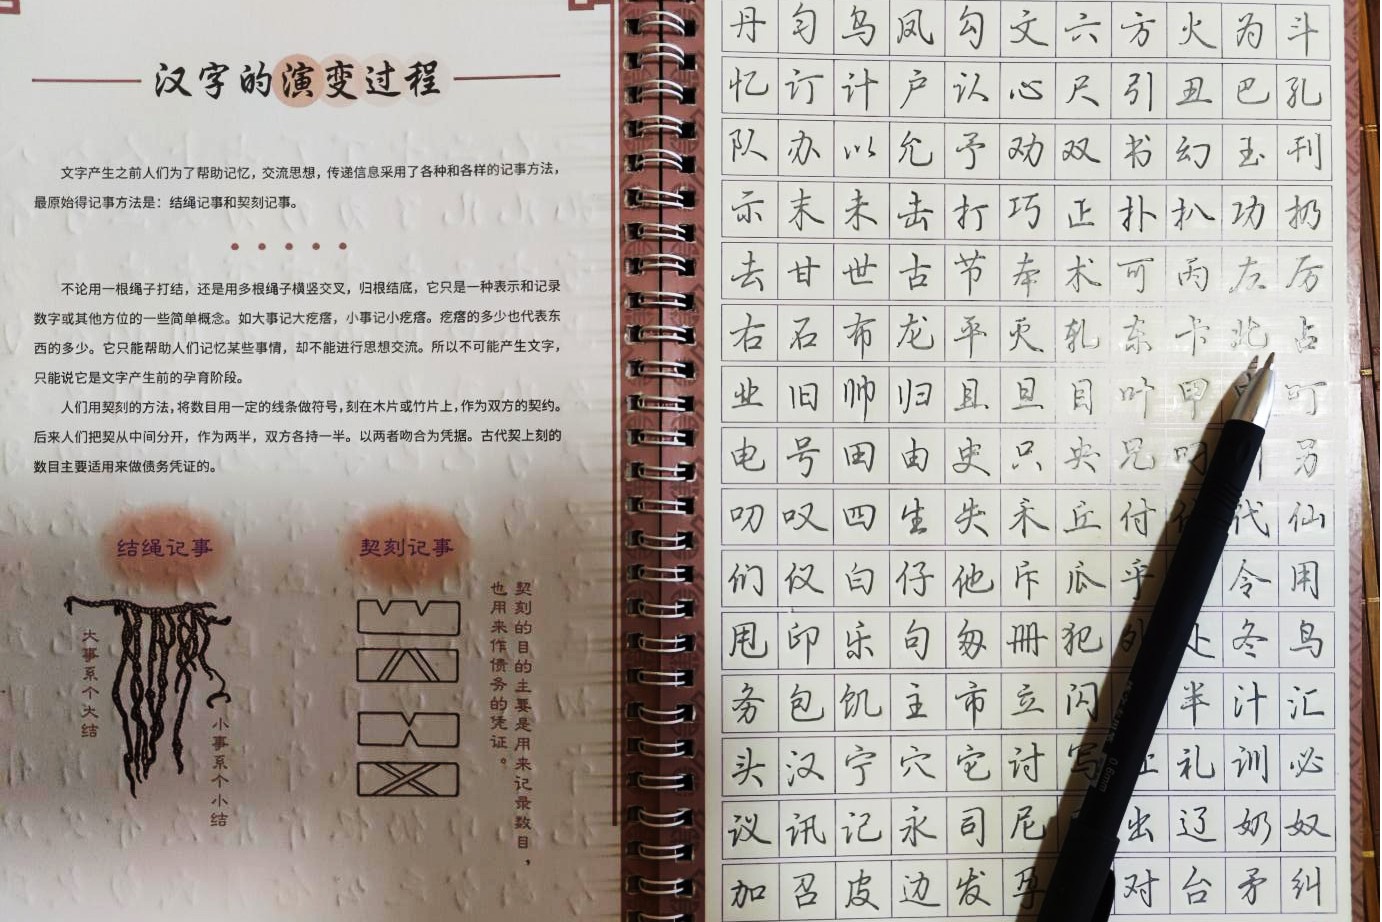 汉字的演变过程
文字产生之前人们为了帮助记忆，交流思想，传递信息采用了各种和各样的记事方法，
最原始得记事方法是：结绳记事和契刻记事。
不论用一根绳子打结，还是用多根绳子横竖交叉，归根结底，它只是一种表示和记录
数字或其他方位的一些简单概念。如大事记大疙瘩，小事记小疙瘩。疙瘩的多少也代表东
西的多少。它只能帮助人们记忆某些事情，却不能进行思想交流。所以不可能产生文字，
只能说它是文字产生前的孕育阶段。
人们用契刻的方法，将数目用一定的线条做符号，刻在木片或竹片上，作为双方的契约。
后来人们把契从中间分开，作为两半，双方各持一半。以两者吻合为凭据。古代契上刻的
数目主要适用来做债务凭证的。
结绳记事
大事系个大结
小事系个小结
契刻记事
契刻的目的主要是用来记录数目，
也用来作债务的凭证。
丹匀乌凤勾文六方火为斗
忆订计户认心尺引丑巴孔
队办以允予劝双书幻玉刊
示末未击打巧正扑扒功扔
去甘世古节本术可丙左厉
右石布龙平灭轧东卡北占
业旧帅归且旦目叶甲叮
电号田由史只央兄叼另
叨叹四生失禾丘付代仙
们仪白仔他斥瓜乎令用
甩印乐句匆册犯外处冬鸟
务包饥主市立闪半汁汇
头汉宁穴它讨写让礼训必
议讯记永司尼出辽奶奴
加召皮边发孕对台矛纠
0.6mm